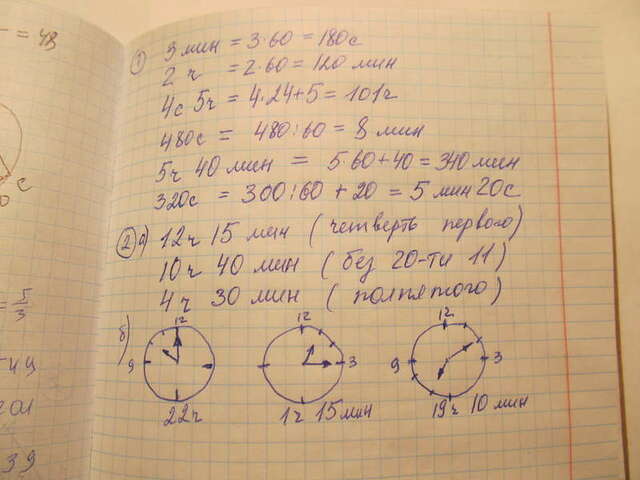 = 43
① 3 мин = 3·60 = 180с
2 ч = 2·60 = 120 мин
4с 5ч = 4·24+5 = 101ч
480с = 480:60 = 8 мин
5ч 40 мин = 5·60+40 = 340 мин
320с = 300:60 + 20 = 5 мин 20с
② а) 12ч 15 мин (четверть первого)
10ч 40 мин (без 20-ти 11)
4ч 30 мин (полпятого)
б) 12 9 22ч
12 3 1ч 15мин
12 9 3 19ч 10 мин
с
= 5/3
39